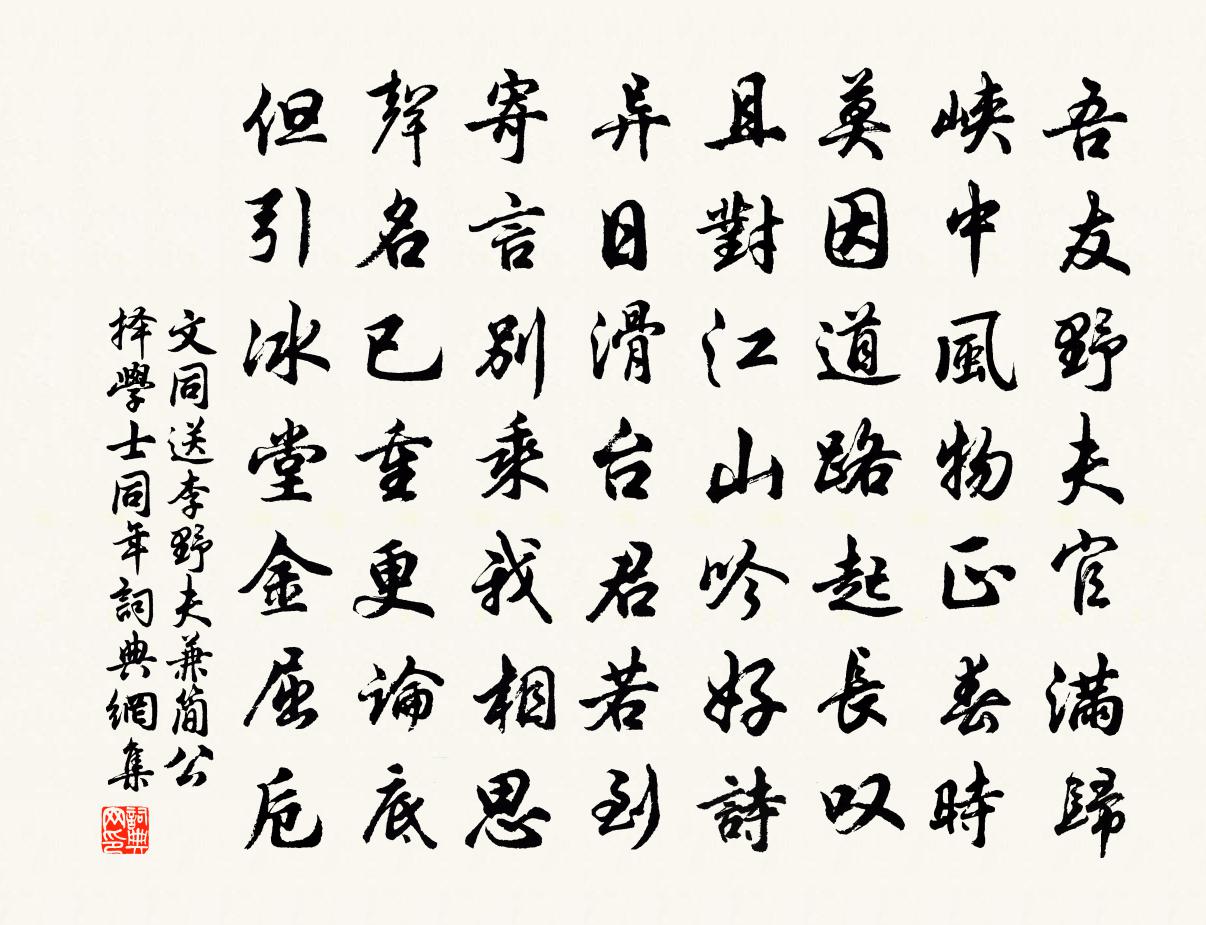 吾友野夫官滿歸
峽中風物正春時
莫因道路起長叹
且對江山吟好詩
异日滑台君若到
寄言别乘我相思
聲名已重更論底
但引冰堂金屈卮
文同送李野夫兼简公
择學士同年詞典網集
詞典
网印